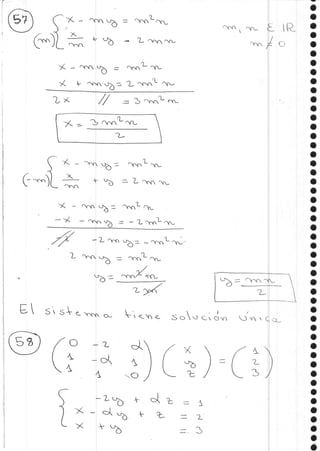 57) { x - my = m²n
(m) { x/m + y = 2mn
m, n ∈ IR
m ≠ 0
x - my = m²n
x + my = 2m²n
2x // = 3m²n
x = 3m²n / 2
{ x - my = m²n
(-m) { x/m + y = 2mn
x - my = m²n
-x - my = -2m²n
// -2my = -m²n
2my = m²n
y = m²n / 2m
y = mn / 2
El sistema tiene solución única
58) ( 0 -2 α ) ( x ) = ( 1 )
( 1 -α 1 ) ( y ) ( 2 )
( 1 1 0 ) ( z ) ( 3 )
{ -2y + αz = 1
x - αy + z = 2
x + y = 3